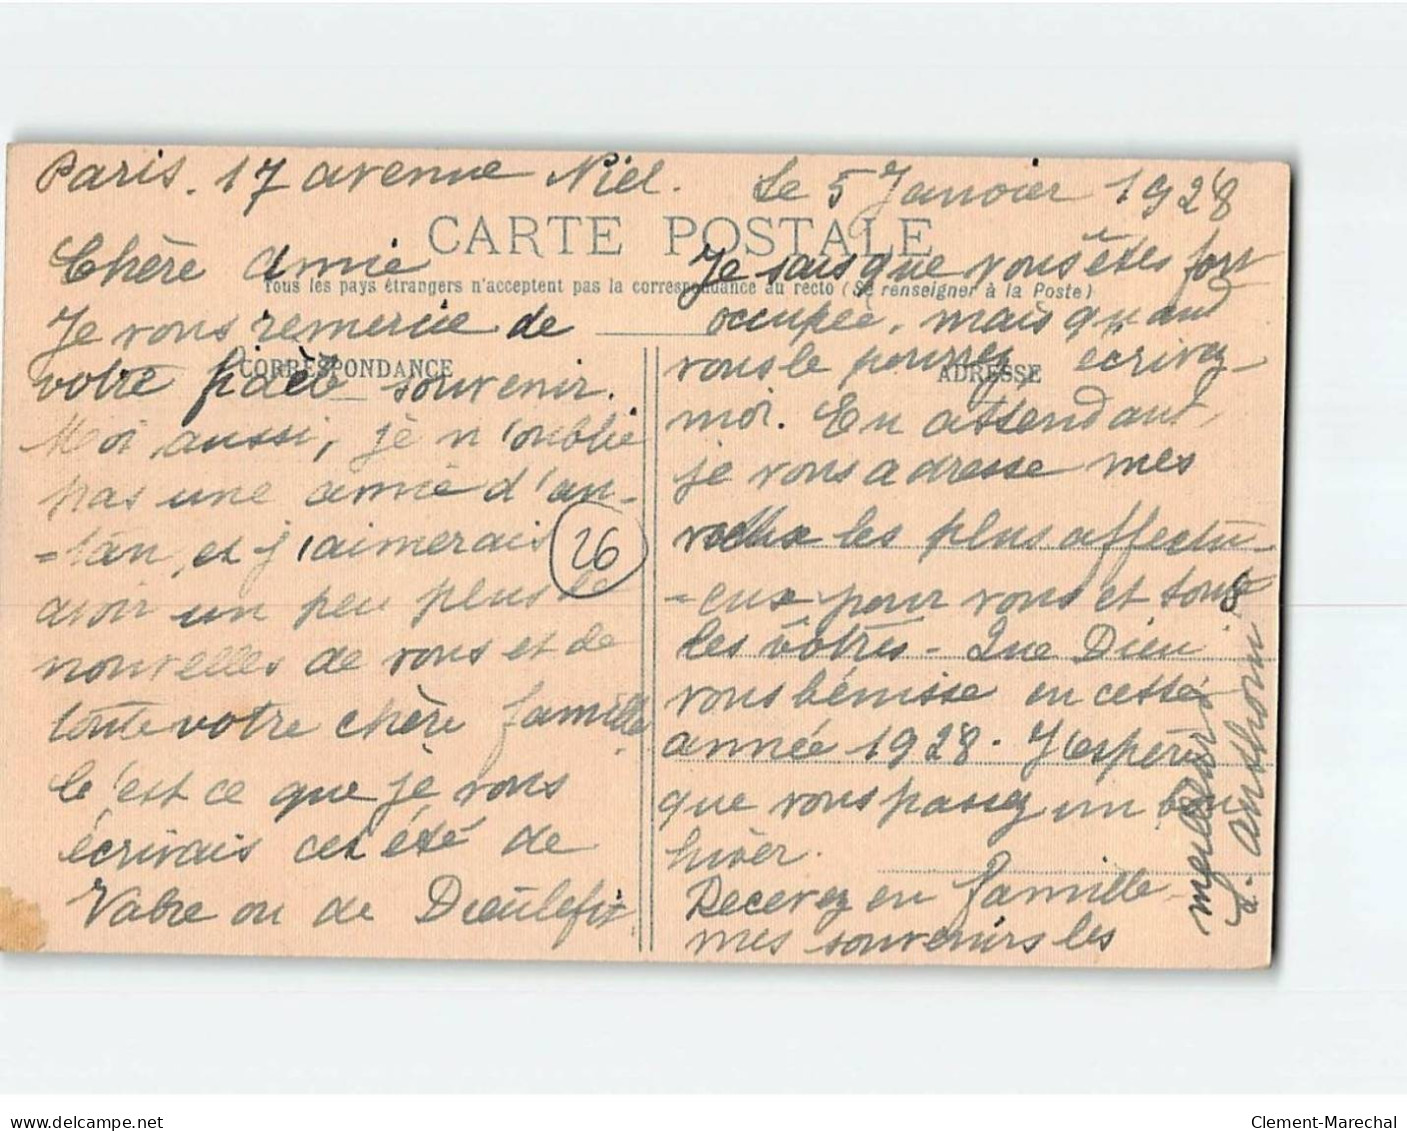 Paris. 17 avenue Niel. Le 5 Janvier 1928
CARTE POSTALE
Tous les pays étrangers n'acceptent pas la correspondance au recto (Se renseigner à la Poste)
CORRESPONDANCE
ADRESSE
Chère Amie
Je vous remercie de
votre fidèle souvenir.
Moi aussi, je n'oublie
pas une amie d'an-
-tan, et j'aimerais
avoir un peu plus de
nouvelles de vous et de
toute votre chère famille
C'est ce que je vous
écrivais cet été de
Vabre ou de Dieulefit
26
Je sais que vous êtes fort
occupée, mais quand
vous le pourrez écrivez-
moi. En attendant,
je vous adresse mes
vœux les plus affectu-
-eux pour vous et tous
les vôtres - Que Dieu
vous bénisse en cette
année 1928. J'espère
que vous passez un bon
hiver.
Recevez en famille
mes souvenirs les
meilleurs
delcampe.net
Clement-Marechal